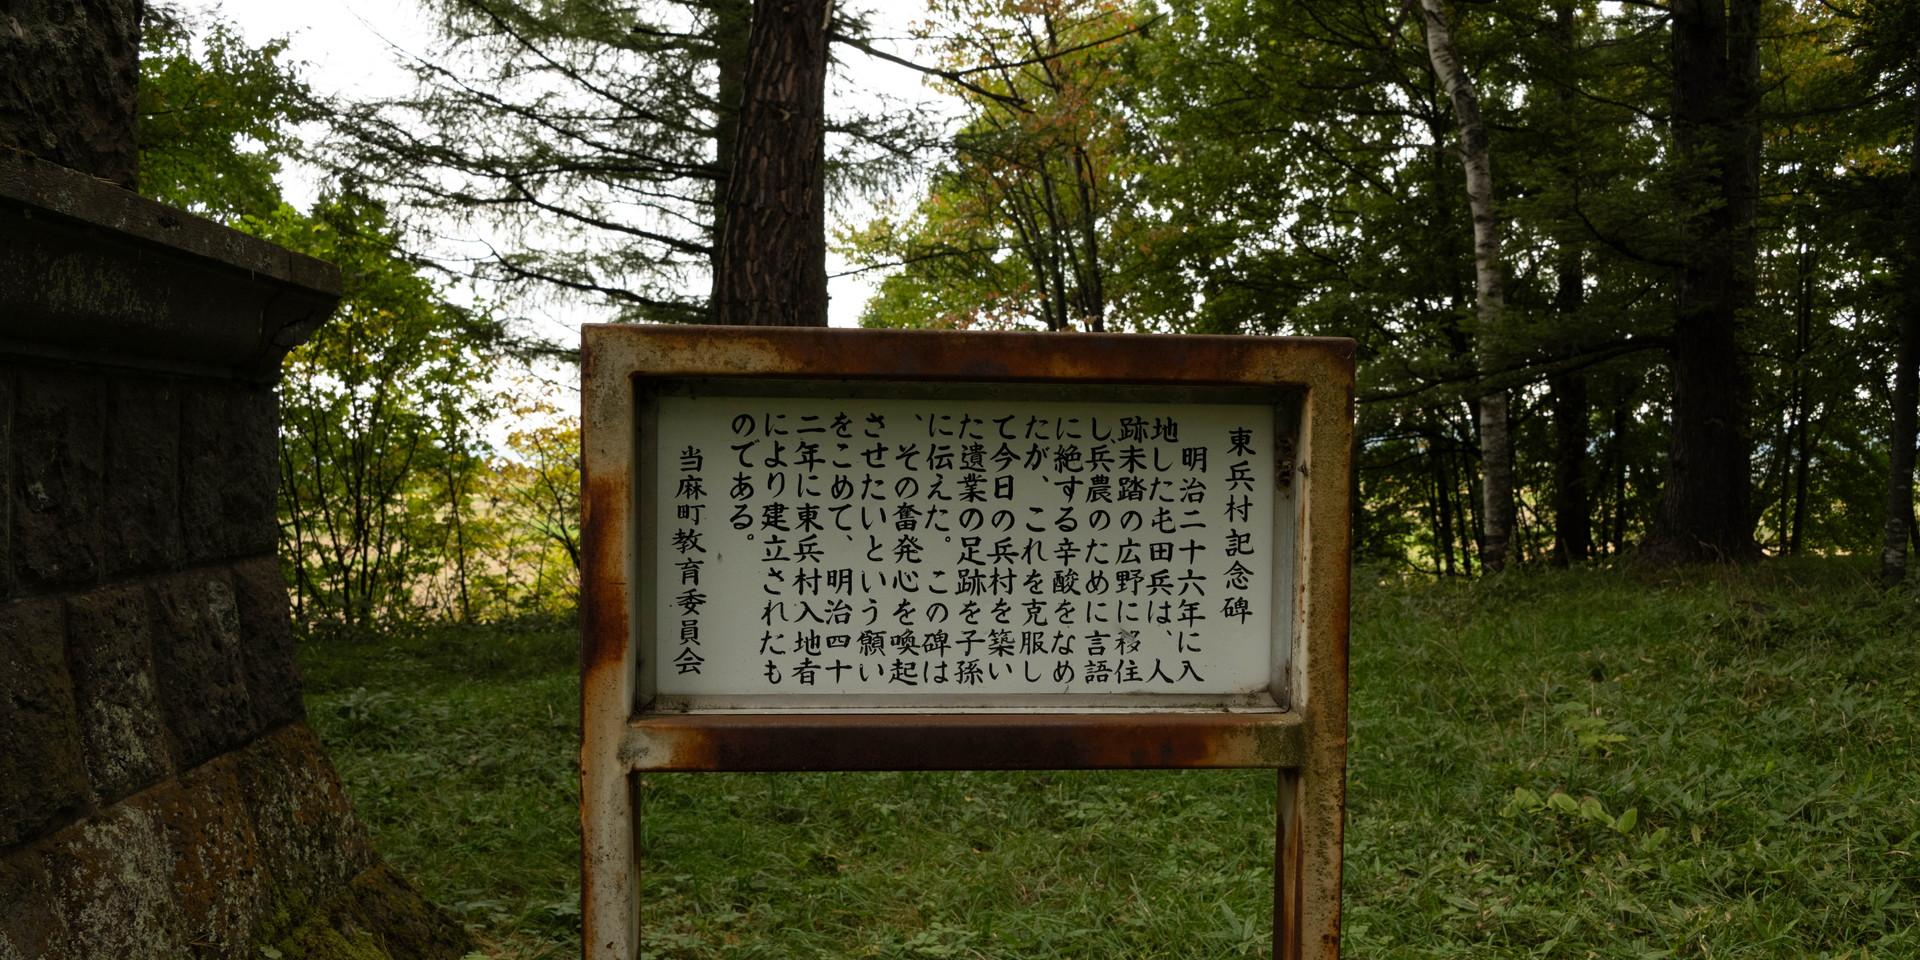 東兵村記念碑
明治二十六年に入
地した屯田兵は、人
跡未踏の広野に移住
し、兵農のために言語
に絶する辛酸をなめ
たが、これを克服し
て今日の兵村を築い
た遺業の足跡を子孫
に伝えた。この碑は
、その奮発心を喚起
させたいという願い
をこめて、明治四十
二年に東兵村入地者
により建立されたも
のである。
当麻町教育委員会